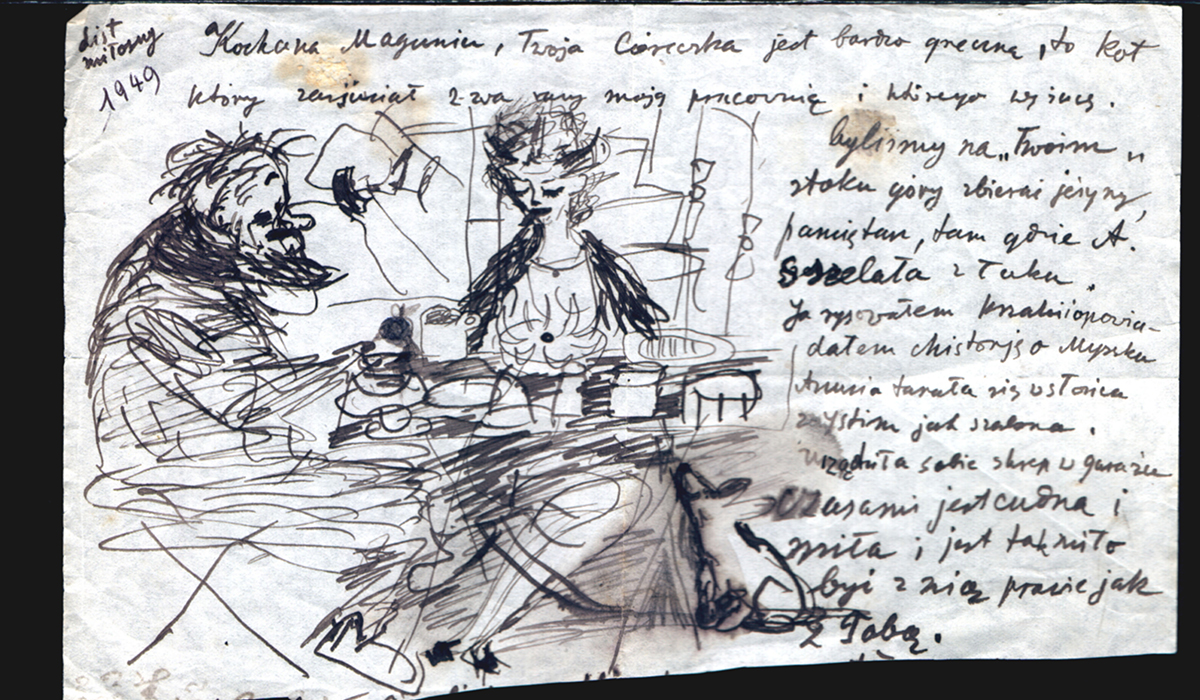 list
miłosny
1949
Kochana Maguniu, Twoja Córeczka jest bardzo grzeczna, to kot
który zaświniał 2-wa razy moją pracownię i którego wyrzucę.
byliśmy na „Twoim„
stoku góry zbierać jeżyny,
pamiętasz, tam gdzie A.
strzelała z łuku.
Ja rysowałem krzaki i opowia-
dałem historyję o Myszku
Anusia tarzała się w słońcu
jak szalona.
urządziła sobie sklep w garażu
Czasami jest cudna i
miła i jest tak miło
być z nią prawie jak
z Tobą.